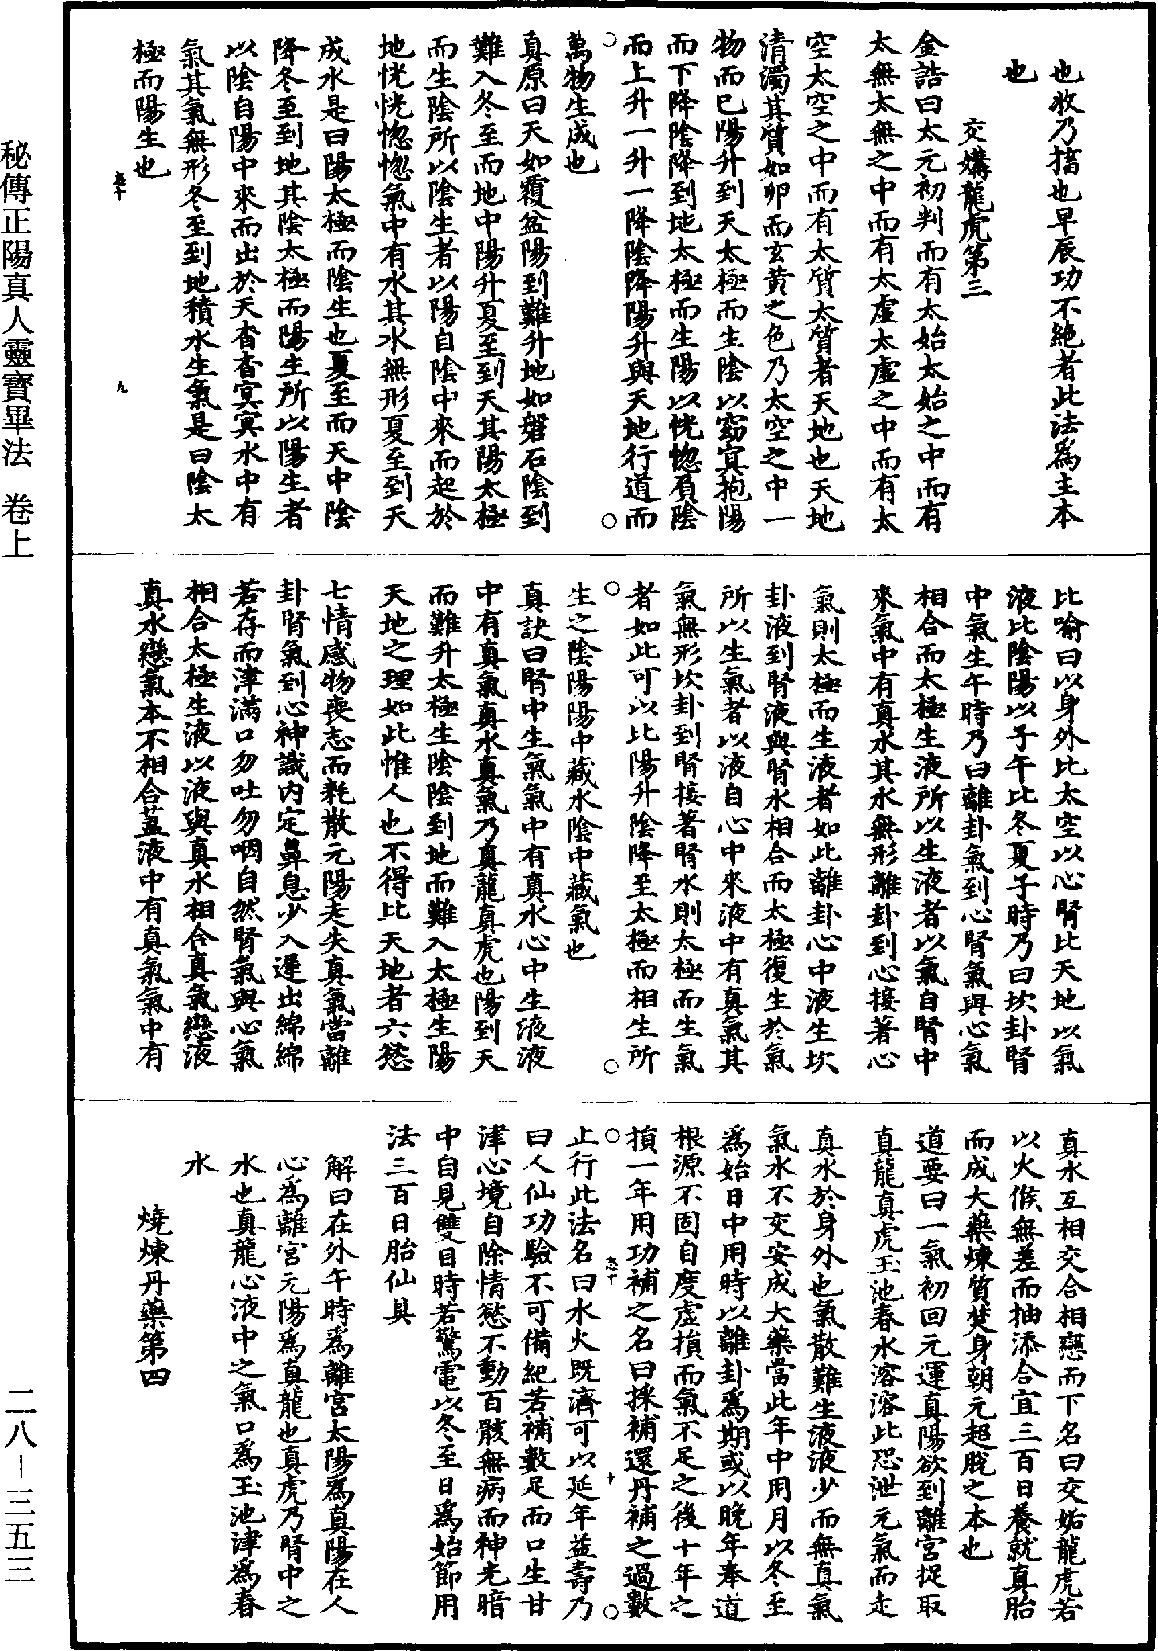 也收乃搐也早辰功不絕者此法爲主本
也
交媾龍虎第三
金誥曰太元初判而有太始太始之中而有
太無太無之中而有太虛太虛之中而有太
空太空之中而有太質太質者天地也天地
清濁其質如卵而玄黃之色乃太空之中一
物而已陽升到天太極而生陰以窈冥抱陽
而下降陰降到地太極而生陽以恍惚負陰
而上升一升一降陰降陽升與天地行道而
萬物生成也
真原曰天如覆盆陽到難升地如磐石陰到
難入冬至而地中陽升夏至到天其陽太極
而生陰所以陰生者以陽自陰中來而起於
地恍恍惚惚氣中有水其水無形夏至到天
成水是曰陽太極而陰生也夏至而天中陰
降冬至到地其陰太極而陽生所以陽生者
以陰自陽中來而出於天杳杳冥冥水中有
氣其氣無形冬至到地積水生氣是曰陰太
極而陽生也
比喻曰以身外比太空以心腎比天地以氣
液比陰陽以子午比冬夏子時乃曰坎卦腎
中氣生午時乃曰離卦氣到心腎氣與心氣
相合而太極生液所以生液者以氣自腎中
來氣中有真水其水無形離卦到心接著心
氣則太極而生液者如此離卦心中液生坎
卦液到腎液與腎水相合而太極復生於氣
所以生氣者以液自心中來液中有真氣其
氣無形坎卦到腎接著腎水則太極而生氣
者如此可以比陽升陰降至太極而相生所
生之陰陽陽中藏水陰中藏氣也
真訣曰腎中生氣氣中有真水心中生液液
中有真氣真水真氣乃真龍真虎也陽到天
而難升太極生陰陰到地而難入太極生陽
天地之理如此惟人也不得比天地者六慾
七情感物喪志而耗散元陽走失真氣當離
卦腎氣到心神識內定鼻息少入遲出綿綿
若存而津滿口勿吐勿咽自然腎氣與心氣
相合太極生液以液與真水相合真氣戀液
真水戀氣本不相合蓋液中有真氣氣中有
真水互相交合相戀而下名曰交姤龍虎若
以火候無差而抽添合宜三百日養就真胎
而成大藥煉質焚身朝元超脫之本也
道要曰一氣初回元運真陽欲到離宮捉取
真龍真虎玉池春水溶溶此恐泄元氣而走
真水於身外也氣散難生液液少而無真氣
氣水不交安成大藥當此年中用月以冬至
爲始日中用時以離卦爲期或以晚年奉道
根源不固自度虛損而氣不足之後十年之
損一年用功補之名曰採補還丹補之過數
止行此法名曰水火既濟可以延年益壽乃
曰人仙功驗不可備紀若補數足而口生甘
津心境自除情慾不動百骸無病而神光暗
中自見雙目時若驚電以冬至日爲始節用
法三百日胎仙具
解曰在外午時爲離宮太陽爲真陽在人
心爲離宮元陽爲真龍也真虎乃腎中之
水也真龍心液中之氣口爲玉池津爲春
水
燒煉丹藥第四
九
十
秘傳正陽真人靈寶畢法 卷上
二八－三五三